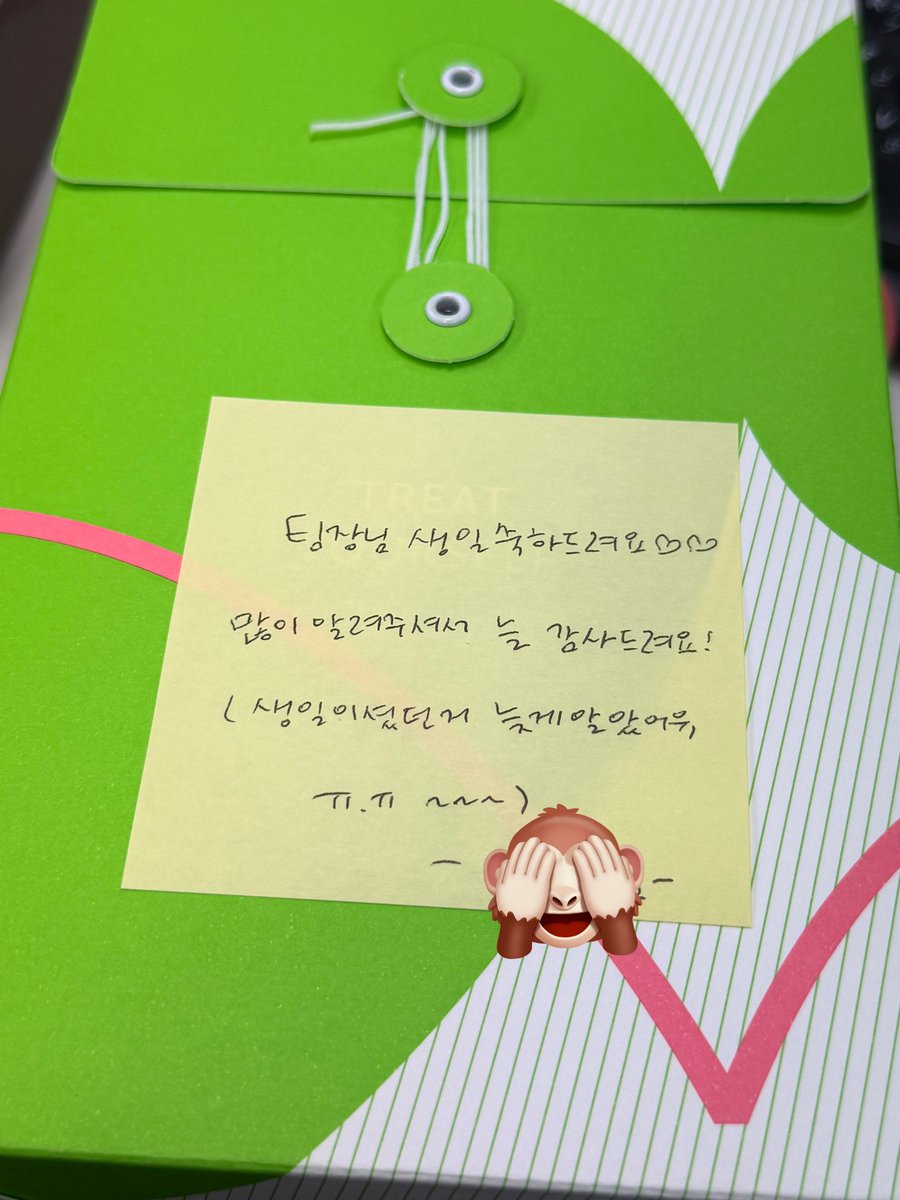 TREAT
팀장님 생일축하드려요♡♡
많이 알려주셔서 늘 감사드려요!
( 생일이셨던거 늦게알았어위,
ㅠ.ㅠ ~~~)